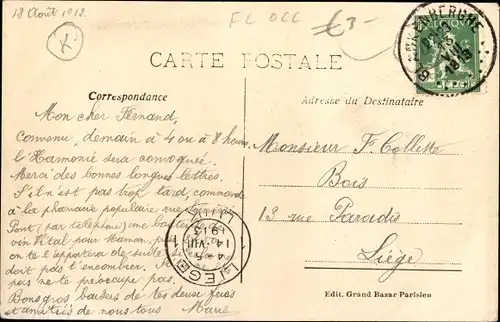 13 Août 1913.
FL OCC
€3-
CARTE POSTALE
Correspondance
Adresse du Destinataire
Mon cher Fernand,
Convenu, demain à 4 ou à 8 heures
l'Harmonie sera convoquée.
Merci des bonnes longues lettres.
S'il n'est pas trop tard, commande
à la pharmacie populaire rue
Pont (par téléphone) une bouteille
vin Vital pour Maman,
on te l'apportera de suite
doit pas t'encombrer. Si
pas ne te préoccupe pas.
Bons gros baisers de tes deuse fères
et amitiés de nous tous Marie
Monsieur F. Collette
Bois
13 rue Paradis
Liège
LIEGE
14 VIII
1913
Edit. Grand Bazar Parisien